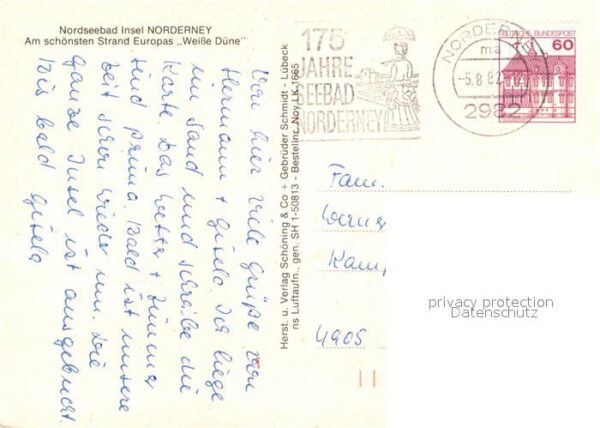 Nordseebad Insel NORDERNEY
Am schönsten Strand Europas „Weiße Düne"
Von hier viele Grüße von
Hermann + Gisela. Ich liege
im Sand und schreibe die
Karte. Das Wetter + Zimmer
sind prima. Bald ist unsere
Zeit schon wieder um. Die
ganze Insel ist ausgebucht.
Bis bald Gisela
Herst. u. Verlag Schöning & Co + Gebrüder Schmidt - Lübeck
ns Luftaufn., gen. SH 1-50813 - Bestellnr. Noy.LK.1665
175
JAHRE
SEEBAD
NORDERNEY
NORDERNEY
ma
-5.8.82
2982
DEUTSCHE BUNDESPOST
60
Fam.
Werner
Kamp
4905
privacy protection
Datenschutz